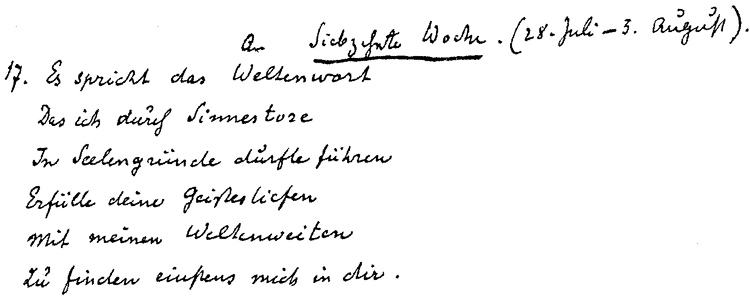 Q. Siebzehnte Woche. (28. Juli – 3. August).
17. Es spricht das Weltenwort
Das ich durch Sinnestore
In Seelengründe durfte führen
Erfülle deine Geistestiefen
Mit meinen Weltenweiten
Zu finden einstens mich in dir.